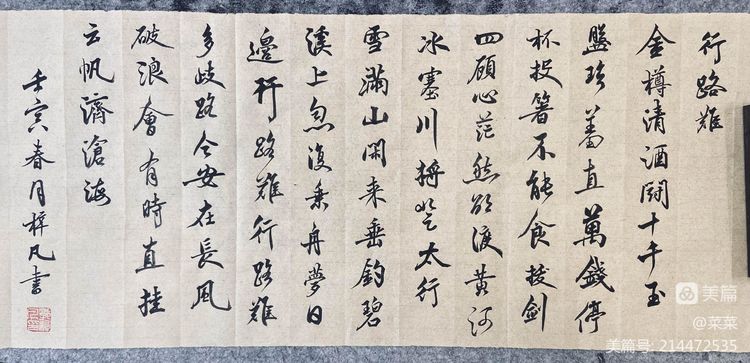 行路難
金樽清酒鬪十千玉
盤珍羞直萬錢停
杯投箸不能食拔劍
四顧心茫然欲渡黄河
冰塞川將登太行
雪滿山閑来垂釣碧
溪上忽復乗舟夢日
邊行路難行路難
多歧路今安在長風
破浪會有時直挂
云帆濟滄海
壬寅春月梓凡書
美篇
@菜菜
美篇号: 214472535